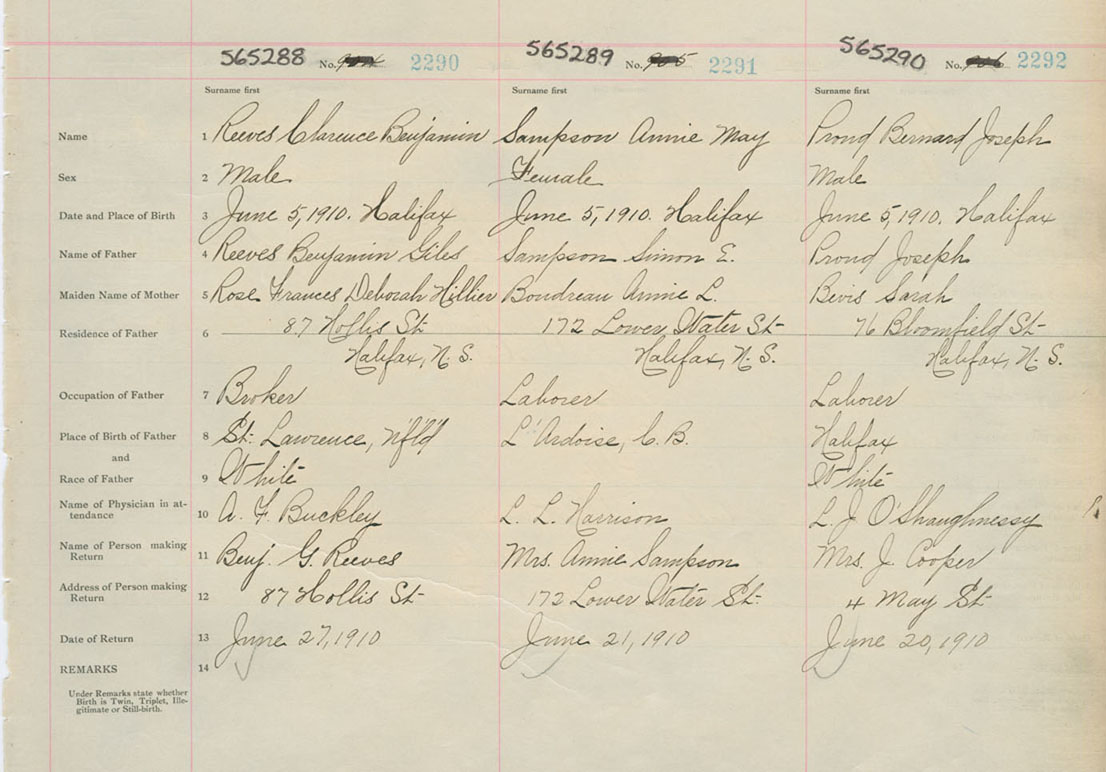 565288 No. 2290 565289 No. 905 2291 565290 No. 906 2292
Surname first Surname first Surname first
Name 1 Reeves Clarence Benjamin Sampson Annie May Proud Bernard Joseph
Sex 2 Male Female Male
Date and Place of Birth 3 June 5, 1910. Halifax June 5, 1910. Halifax June 5, 1910. Halifax
Name of Father 4 Reeves Benjamin Giles Sampson Simon E. Proud Joseph
Maiden Name of Mother 5 Rose Frances Deborah Hillier Boudreau Annie L. Bevis Sarah
Residence of Father 6 87 Hollis St 172 Lower Water St 76 Bloomfield St
Halifax, N. S. Halifax, N. S. Halifax, N. S.
Occupation of Father 7 Broker Laborer Laborer
Place of Birth of Father 8 St. Lawrence, Nfld L'Ardoise, C. B. Halifax
and
Race of Father 9 White White
Name of Physician in at-
tendance 10 A. F. Buckley L. L. Harrison L. J O'Shaughnessy
Name of Person making
Return 11 Benj. G. Reeves Mrs. Annie Sampson Mrs. J. Cooper
Address of Person making
Return 12 87 Hollis St 172 Lower Water St. 4 May St
Date of Return 13 June 27, 1910 June 21, 1910 June 20, 1910
REMARKS 14
Under Remarks state whether
Birth is Twin, Triplet, Ille-
gitimate or Still-birth.